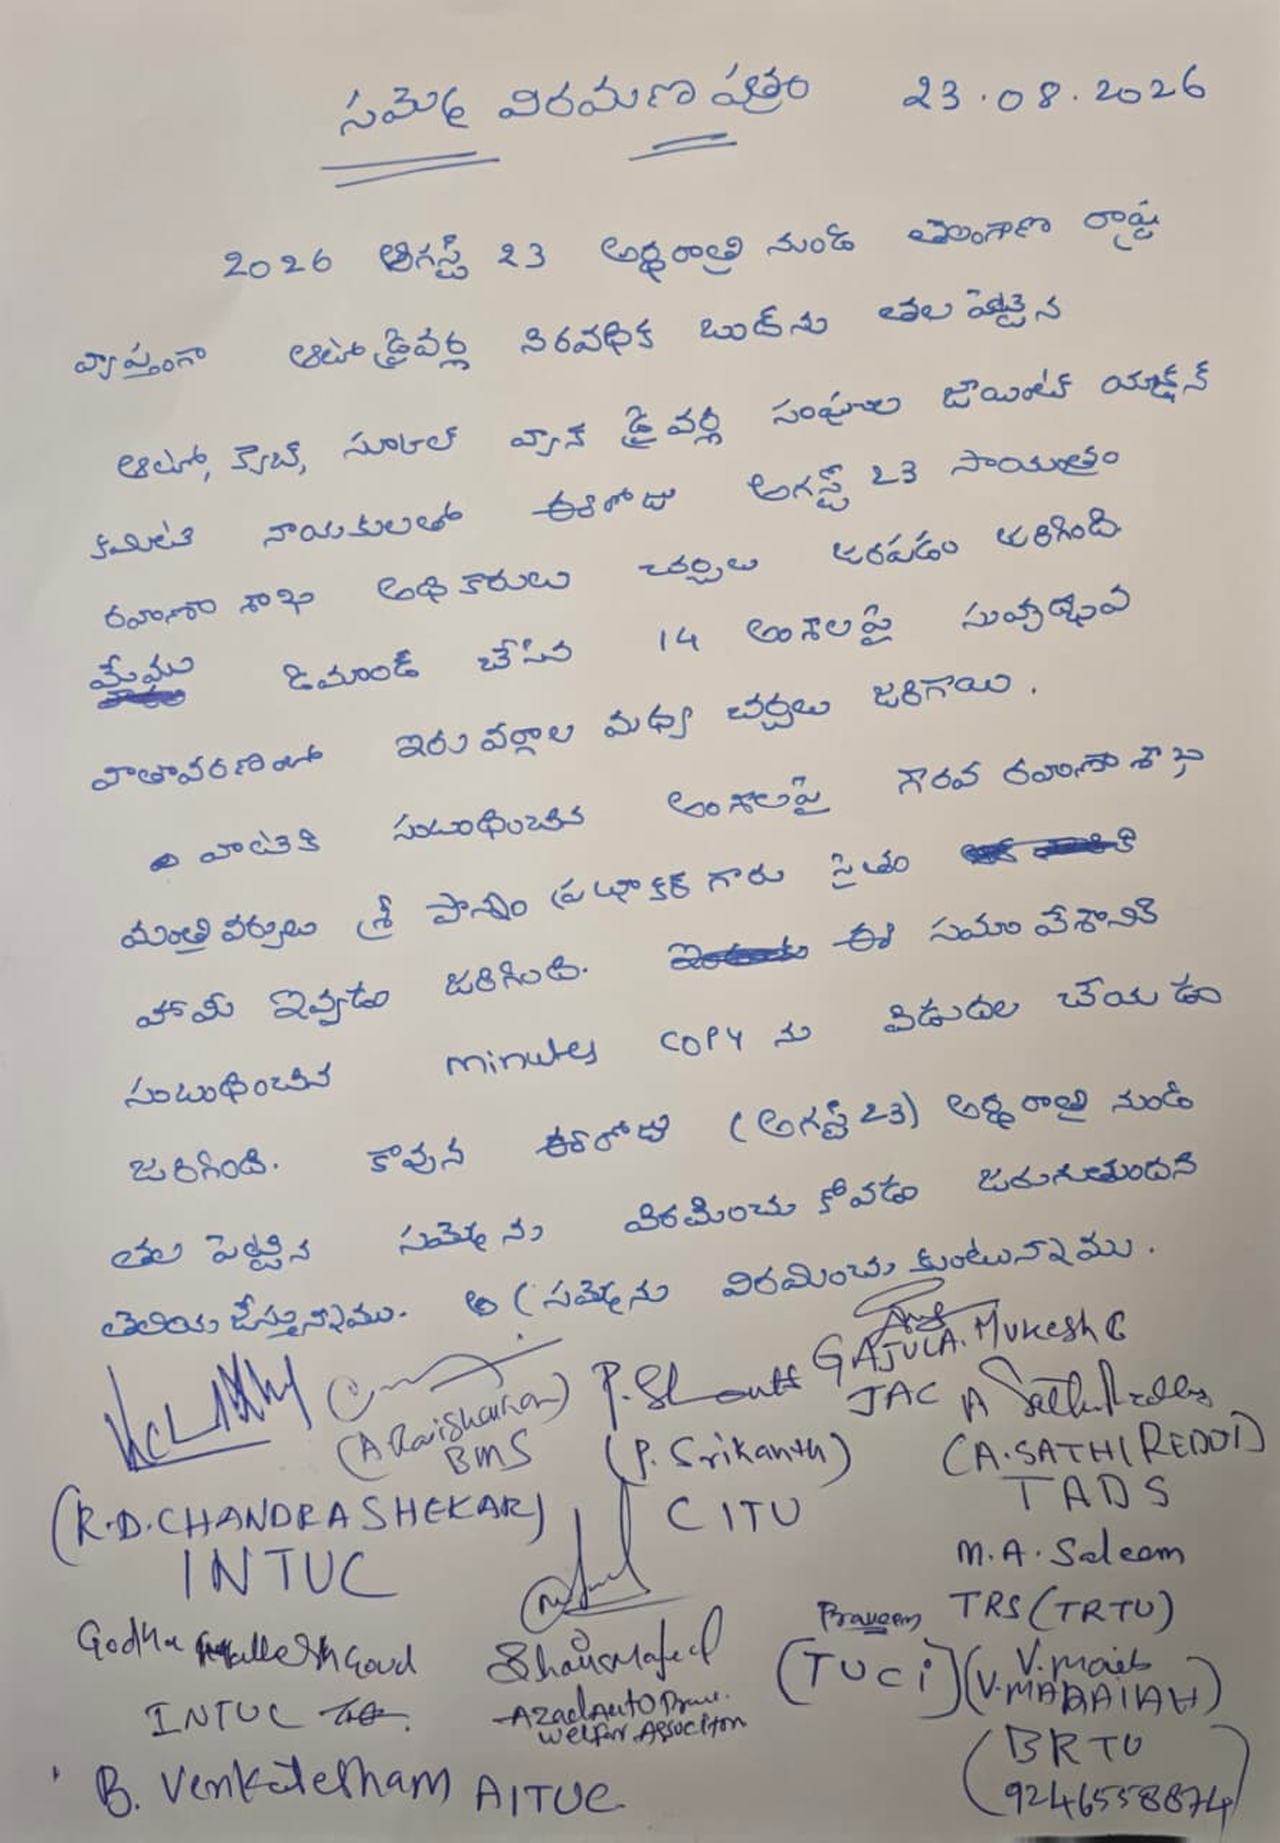 సమ్మె విరమణ పత్రం 23.08.2026
2026 ఆగస్ట్ 23 అర్థరాత్రి నుండి తెలంగాణ రాష్ట్ర
వ్యాప్తంగా ఆటో డ్రైవర్ల నిరవధిక బంద్‌ను తల పెట్టైన
ఆటో, క్యాబ్, స్కూల్ వ్యాన్ డ్రైవర్ల సంఘాల జాయింట్ యాక్షన్
కమిటి నాయకులతో ఈరోజు అగస్ట్ 23 సాయంత్రం
రవాణా శాఖ అధికారులు చర్చలు జరపడం జరిగింది
మేము డిమాండ్ చేసిన 14 అంశాలపై సుహృద్భావ
వాతావరణంలో ఇరు వర్గాల మధ్య చర్చలు జరిగాయి.
వాటికి సంబంధించిన అంశాలపై గౌరవ రవాణా శాఖ
మంత్రి వర్యులు శ్రీ పొన్నం ప్రభాకర్ గారు సైతం
హామీ ఇవ్వడం జరిగింది. ఈ సమావేశానికి
సంబంధించిన minutes COPY ను విడుదల చేయడం
జరిగింది. కావున ఈరోజు (అగస్ట్ 23) అర్థరాత్రి నుండి
తల పెట్టిన సమ్మెను విరమించు కోవడం జరుగుతుందని
తెలియ జేస్తున్నాము. (సమ్మెను విరమించు కుంటున్నాము.
GAJULA. Mukesh G
JAC
(A Ravishankar)
BMS
P. Srikanth
(P. Srikanth)
CITU
A Sathi Reddy
(A. SATHI REDDI)
TADS
(R.D. CHANDRA SHEKAR)
INTUC
M.A. Saleem
TRS (TRTU)
Godha Mallesh Goud
INTUC
Azad Auto
Welfar Association
Praveen
(TUCi)
(V. MARAIAH)
(BRTU
9246558874)
B. Venkatesham AITUC